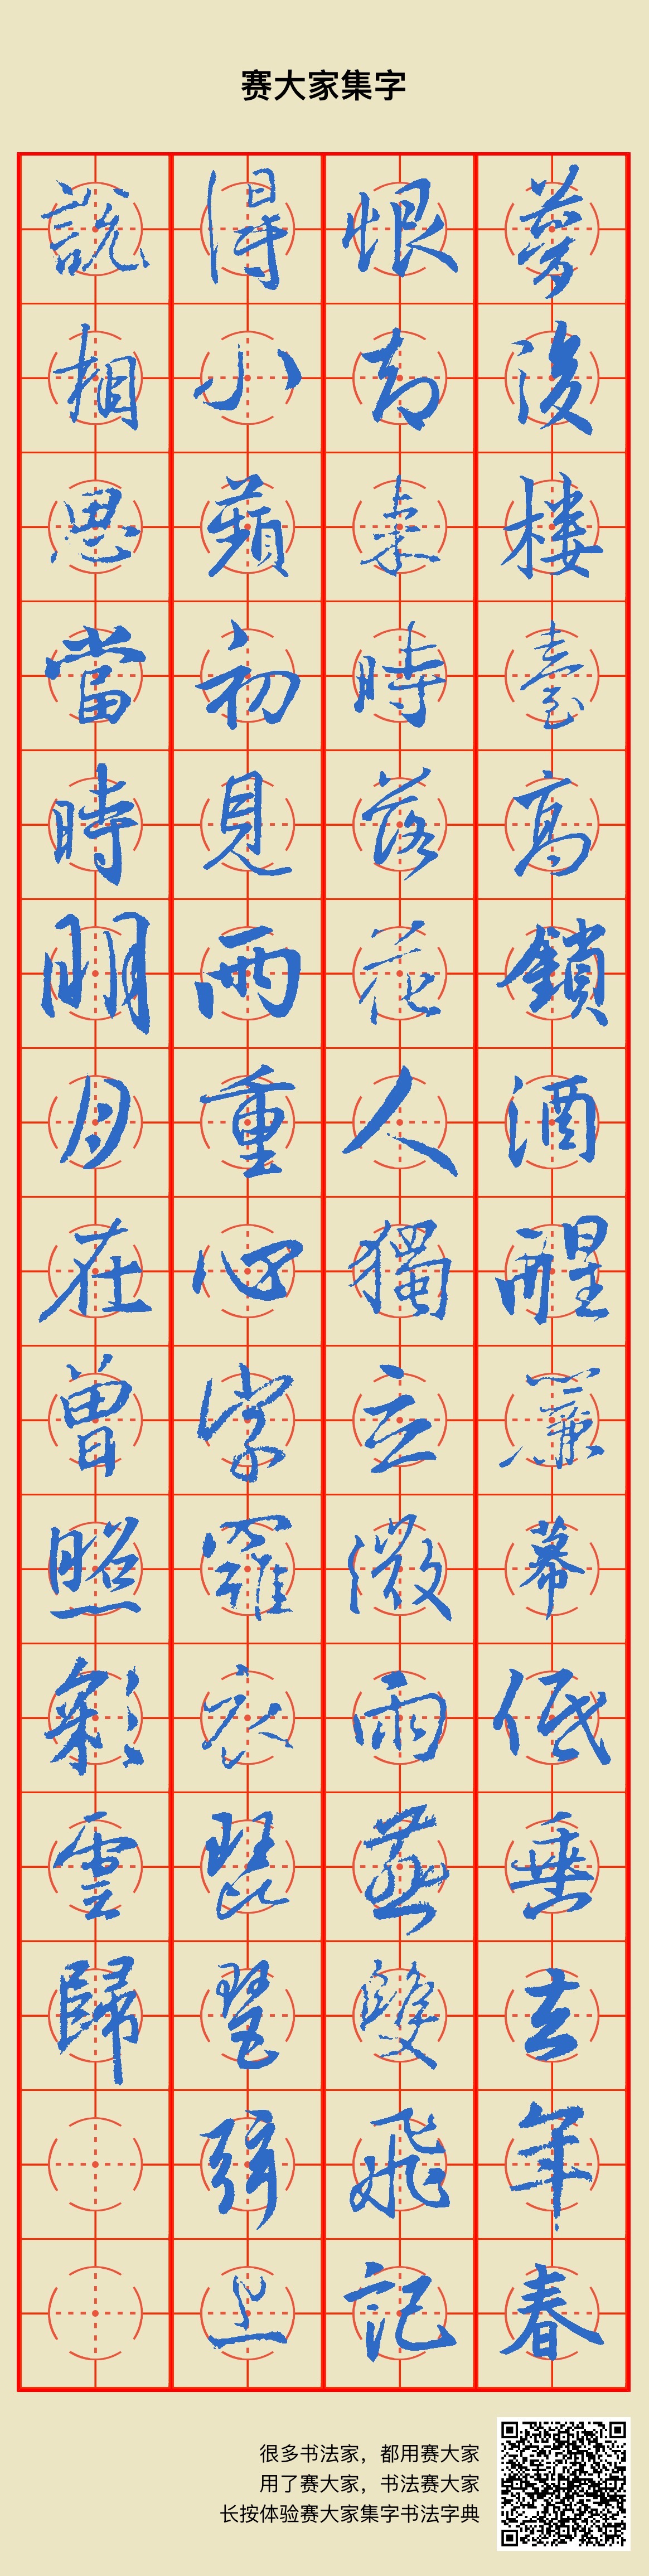 赛大家集字
夢後樓臺高鎖酒醒簾幕低垂去年春
恨却来時落花人獨立微雨燕雙飛記
得小蘋初見兩重心字羅衣琵琶弦上
説相思當時明月在曽照彩雲歸
很多书法家，都用赛大家
用了赛大家，书法赛大家
长按体验赛大家集字书法字典